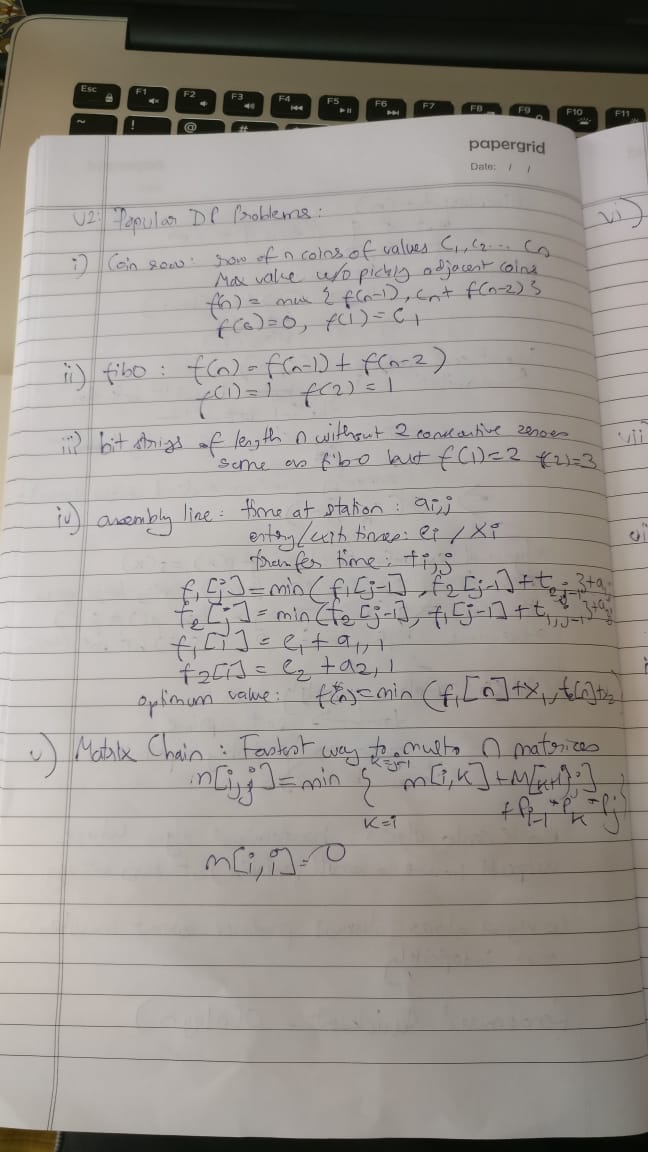 Esc F1 F2 F3 F4 F5 F6 F7 F8 F9 F10 F11
~ ! @ #
papergrid
Date: / /
V2: Popular DP Problems:
i) Coin row: row of n coins of values C1, C2... Cn
Max value w/o pickly adjacent coins
f(n) = max { f(n-1), cn + f(n-2) }
f(0)=0, f(1)=C1
ii) fibo: f(n) = f(n-1) + f(n-2)
f(1)=1 f(2)=1
iii) bit strigs of length n without 2 consecutive zeroes
same as fibo but f(1)=2 f(2)=3
iv) assembly line: time at station: ai,j
entry/exit times: ei / xi
transfer time: ti,j
f1[j] = min( f1[j-1], f2[j-1] + t2,j-1 } + a1
f2[j] = min( f2[j-1], f1[j-1] + t1,j-1 } + a2
f1[1] = e1 + a1,1
f2[1] = e2 + a2,1
optimum value: f*(n) = min ( f1[n] + x1, f2[n] + x2
v) Matrix Chain: Fastest way to mult n matrices
k=j-1
m[i,j] = min { m[i,k] + M[k+1,j]
k=i
+ Pi-1 * Pk * Pj }
m[i,i] = 0
vi)
vii